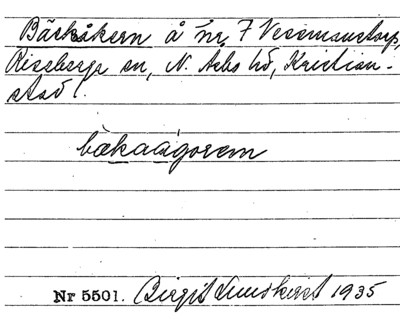 Bäckåkern å nr 7 Vessmantorp,
Riseberga sn, N. Åsbo hd, Kristian-
stad l.
bækaågorem
Nr 5501. Birgit Lundkvist 1935